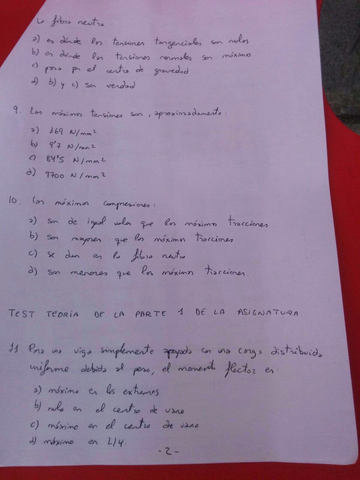 La fibra neutra
a) es donde las tensiones tangenciales son nulas
b) es donde las tensiones normales son máximas
c) pasa por el centro de gravedad
d) b) y c) son verdad
9. Las máximas tensiones son, aproximadamente:
a) 169 N/mm²
b) 9'7 N/mm²
c) 84'5 N/mm²
d) 9700 N/mm²
10. Las máximas compresiones:
a) son de igual valor que las máximas tracciones
b) son mayores que las máximas tracciones
c) se dan en la fibra neutra
d) son menores que las máximas tracciones
TEST TEORÍA DE LA PARTE 1 DE LA ASIGNATURA
11 Para una viga simplemente apoyada con una carga distribuida
uniforme debida al peso, el momento flector es
a) máximo en los extremos
b) nulo en el centro de vano
c) máximo en el centro de vano
d) máximo en L/4
-2-